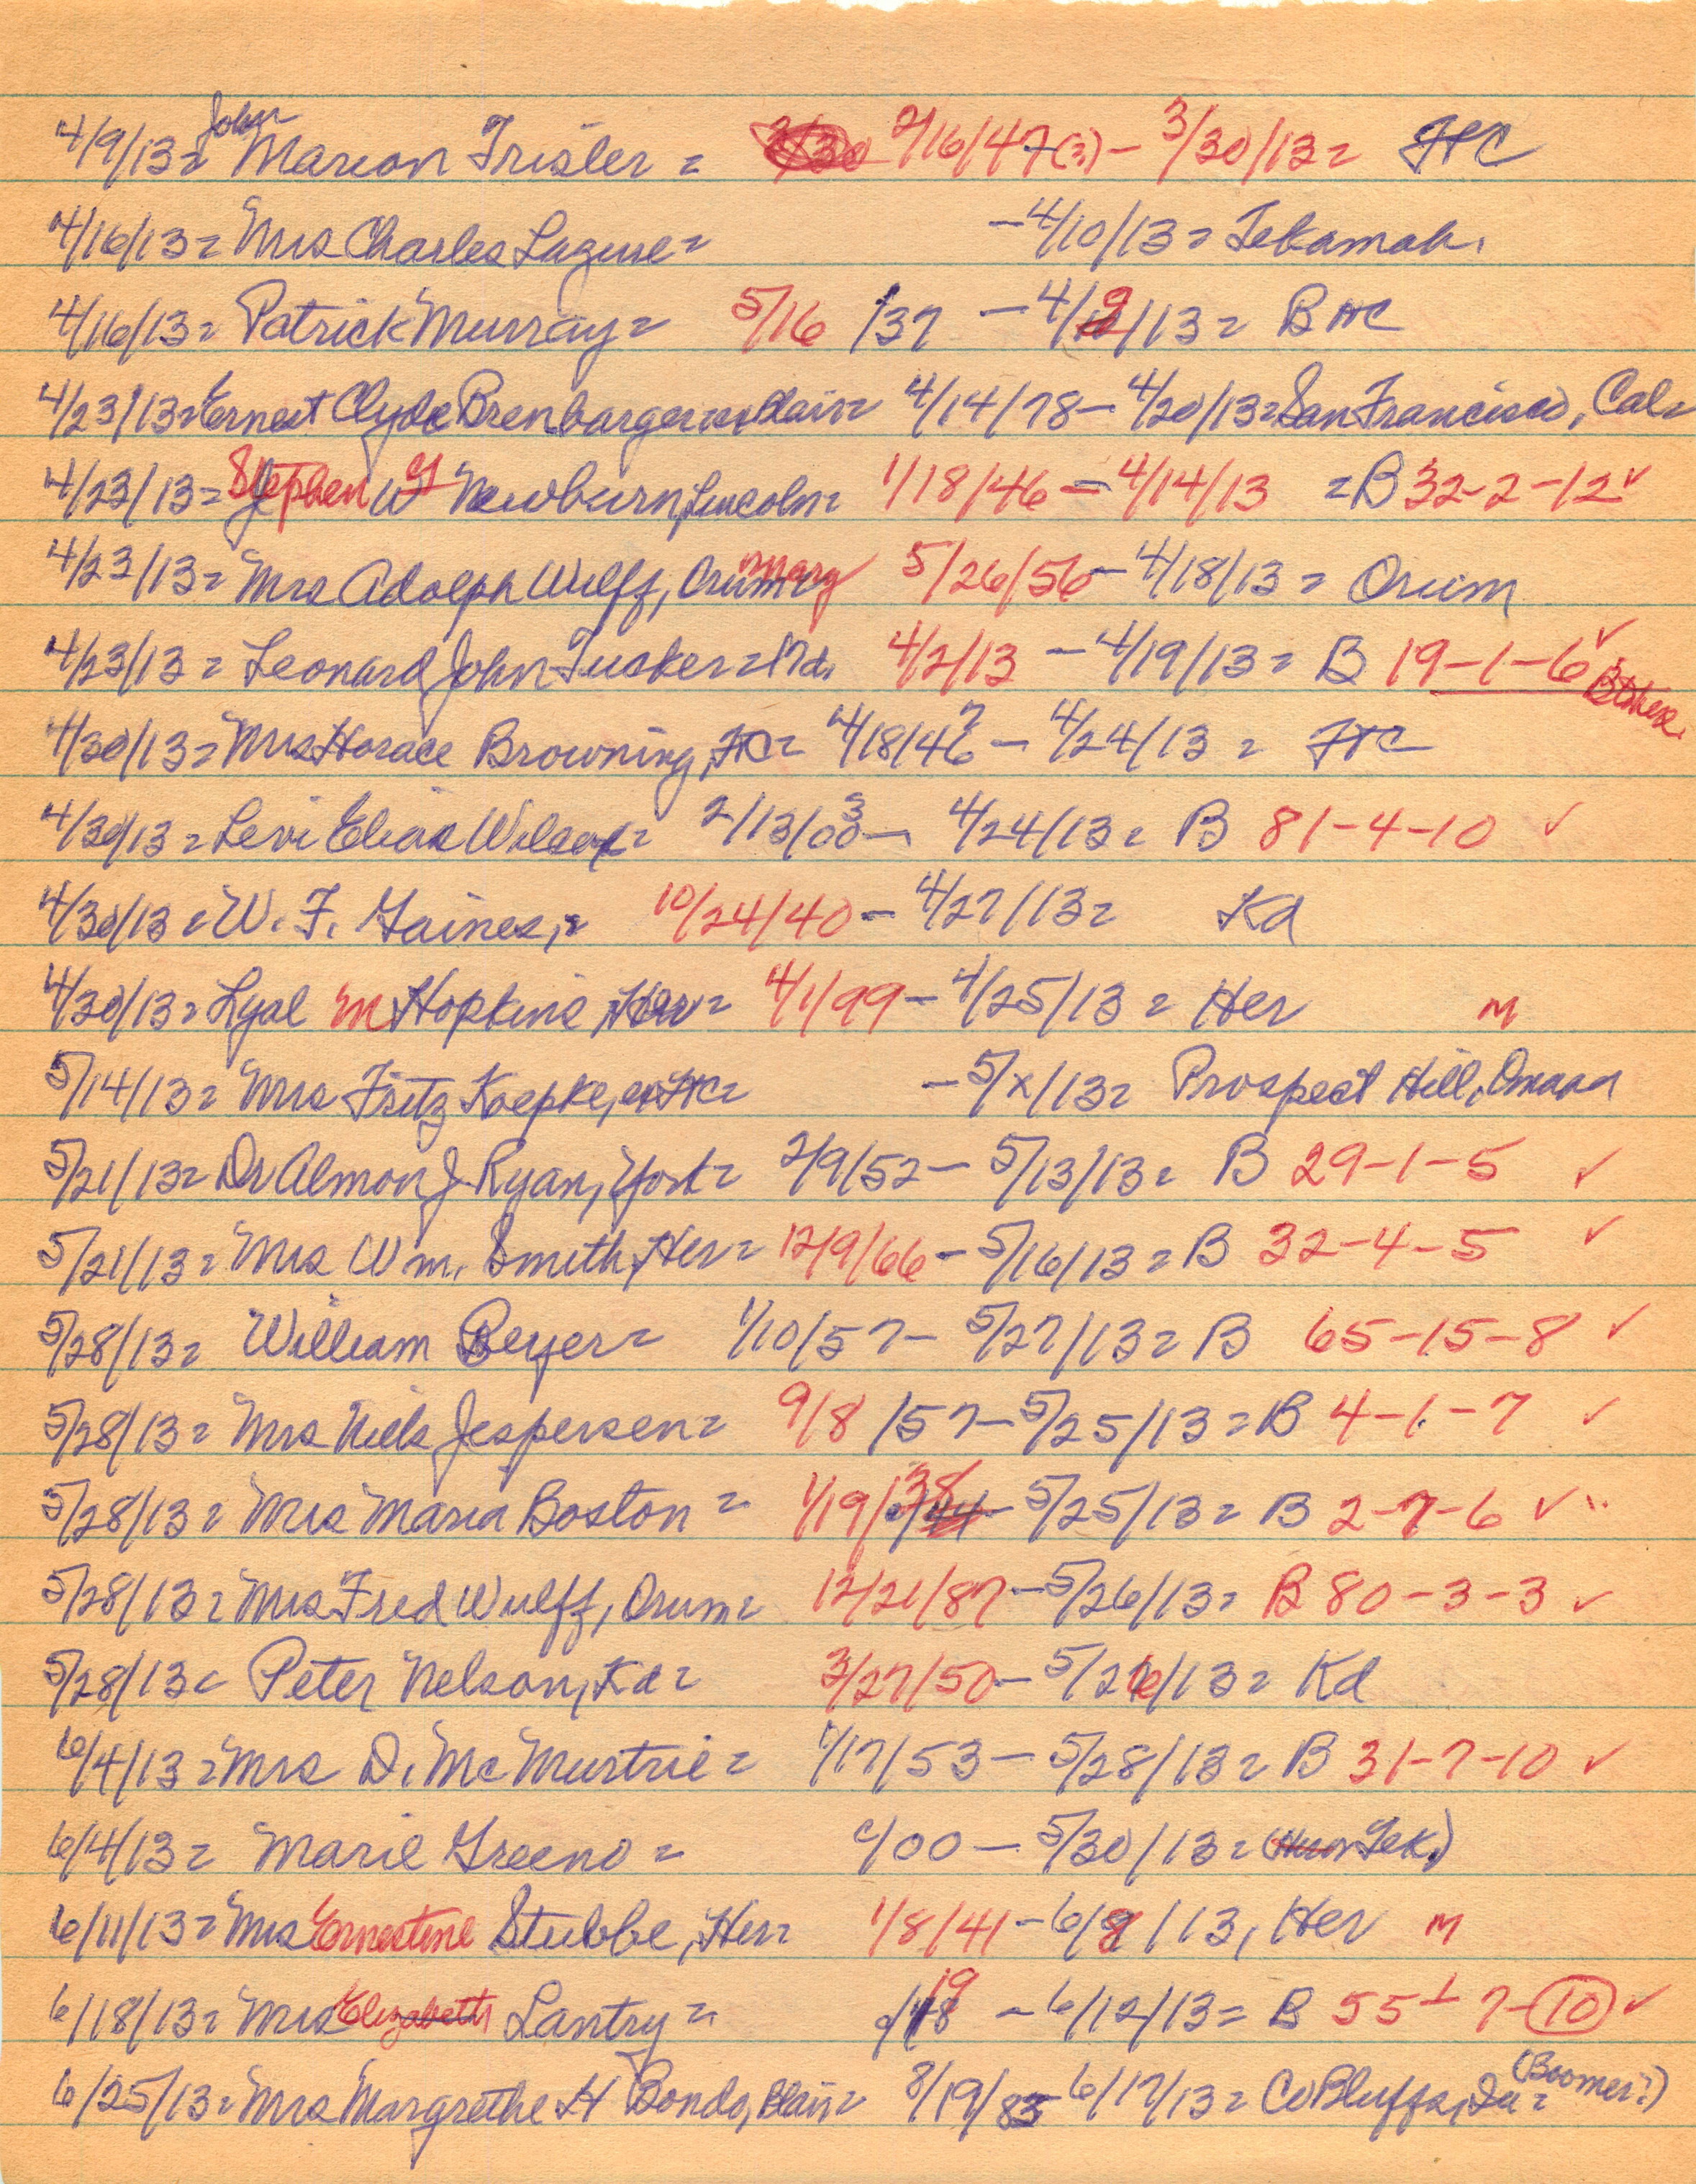 4/9/13= John Marion Trisler = 2/16/47(?) - 3/30/13= FTC
4/16/13= Mrs Charles Laguse= -4/10/13= Tekamah.
4/16/13= Patrick Murray= 5/16/37 - 4/9/13= B HC
4/23/13= Ernest Clyde Brenbarger, ex Blair= 4/14/78- 4/20/13= San Francisco, Cal=
4/23/13= Stephen W Newburn, Lincoln= 1/18/46 - 4/14/13 = B 32-2-12 ✓
4/23/13= Mrs Adolph Wulff, Orum= Mary 5/26/56- 4/18/13= Orum
4/23/13= Leonard John Tucker= 17d. 4/2/13 - 4/19/13= B 19-1-6 ✓
4/30/13= Mrs Horace Browning, FTC= 4/18/46 7 - 4/24/13= FTC
4/30/13= Levi Elias Wilson= 2/13/003- 4/24/13= B 81-4-10 ✓
4/30/13= W. F. Gaines,= 10/24/40- 4/27/13= Kd
4/30/13= Lyal M Hopkins, Her= 4/1/99- 4/25/13= Her M
5/14/13= Mrs Fritz Koepke, ex FTC= -5/x/13= Prospect Hill, Omaha
5/21/13= Dr Almon J Ryan, York= 2/9/52- 5/13/13= B 29-1-5 ✓
5/21/13= Mrs Wm. Smith, Her= 12/9/66- 5/16/13= B 32-4-5 ✓
5/28/13= William Beyer= 1/10/57- 5/27/13= B 65-15-8 ✓
5/28/13= Mrs Niels Jespersen= 9/8/57- 5/25/13= B 4-1-7 ✓
5/28/13= Mrs Maria Boston= 1/19/38- 5/25/13= B 2-7-6 ✓
5/28/13= Mrs Fred Wulff, Orum= 12/21/87- 5/26/13= B 80-3-3 ✓
5/28/13= Peter Nelson, Kd= 3/27/50- 5/26/13= Kd
6/4/13= Mrs D. McMurtrie= 1/17/53- 5/28/13= B 31-7-10 ✓
6/4/13= Marie Greeno= c/00- 5/30/13= (Tek.)
6/11/13= Mrs Ernestine Stubbe, Her= 1/8/41- 6/8/13, Her M
6/18/13= Mrs Elizabeth Lantry= c/19 -6/12/13= B 55-7-10 ✓
6/25/13= Mrs Margrethe H Bondo, Blair= 8/19/85 6/17/13= Co Bluffs, Ia= (Boomer?)